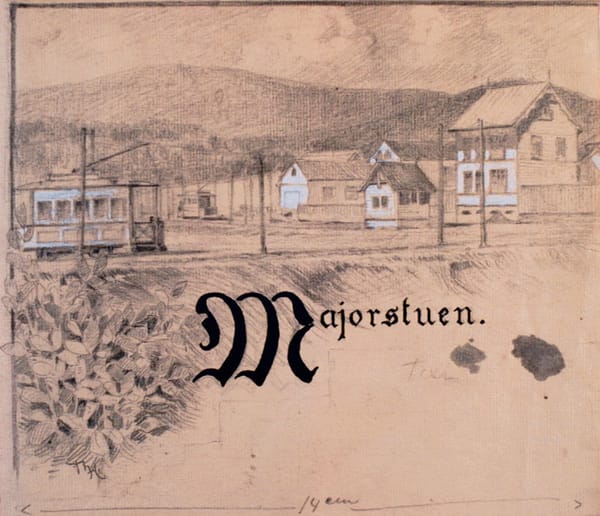 Majorstuen.
14 cm